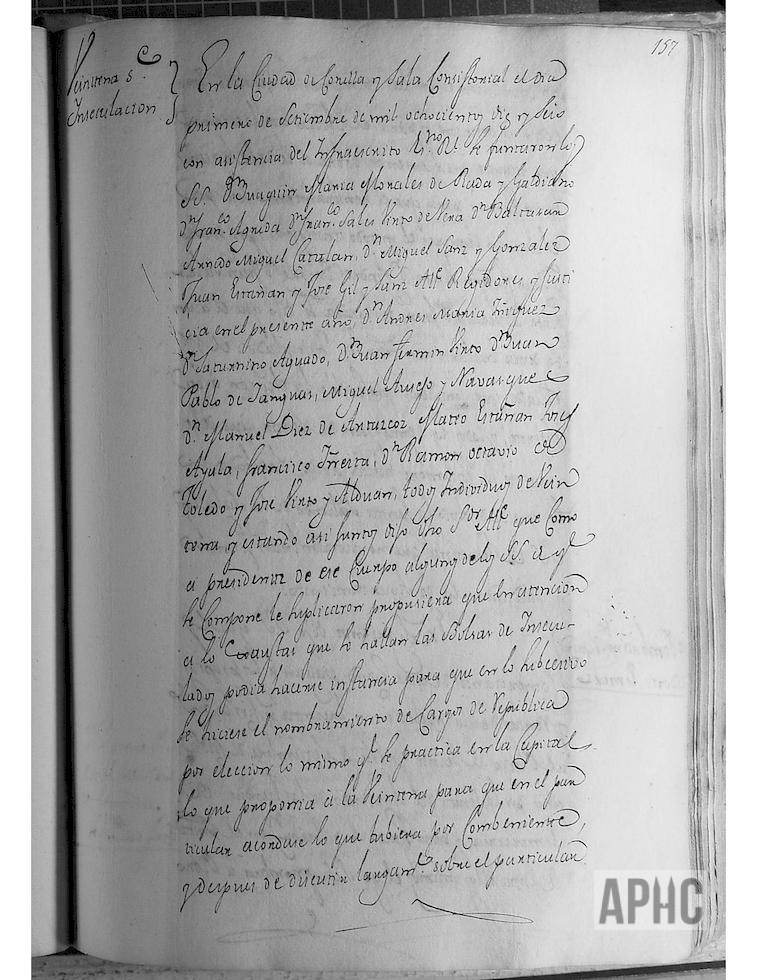 157
Veintena s.e
Inseculacion
En la Ciudad de Corella y Sala Consistorial el dia
primero de Setiembre de mil ochocientos diez y seis
con asistencia del Infraescrito Es.no Rl. se juntaron los
SS. Dn. Juaquin Maria Morales de Rada y Galdiano
dn. Fran.co Agreda dn. Fran.co Sales Virto de Vera dn. Baltasar
Miguel Catalan, dn. Miguel Sanz y Gonzalez
Juan Escuñan y Jose Gil y Sanz Alc.e Regidores, y Justi
cia en el presente año, dn. Andres Maria Iñiguez
dn. Saturnino Aguado, dn. Juan Fermin Virto dn. Juan
Pablo de Tanguas, Miguel y Navasques
dn. Manuel Diez de Mateo Escuñan Jose
Ayala, Francisco dn. Ramon octavio de
Toledo y Jose Virto y Alduan, todos Individuos de Vein
tena, y estando asi juntos dijo dho Sor. Alc.e que como
a presidente de ese Cuerpo algunos de los SS. de q.e
se compone le suplicaron propusiera que en atencion
a lo Exaustas que se hallan las Bolsas de Insecu-
lados podia hacerse instancia para que en lo subcesivo
se hiciese el nombramiento de Cargos de Republica
por eleccion lo mismo q.e se practica en la Capital
lo que proponia à la Veintena para que en el par
ticular acordase lo que tubiera por Combeniente,
y despues de discutir largam.te sobre el particular
APHC